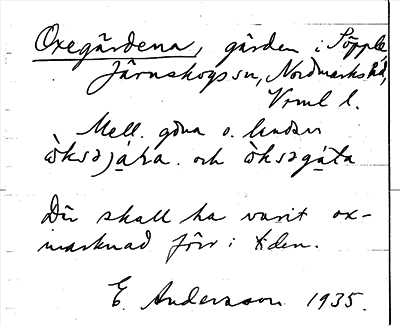 Oxegärdena, gärden i Söpple
Järnskogs sn, Nordmarks hd,
Vrml l.
Mell. gdna o. landsv
òksəjáʀa och òksəgáta
Där skall ha varit ox-
marknad förr i tiden.
E. Andersson 1935.